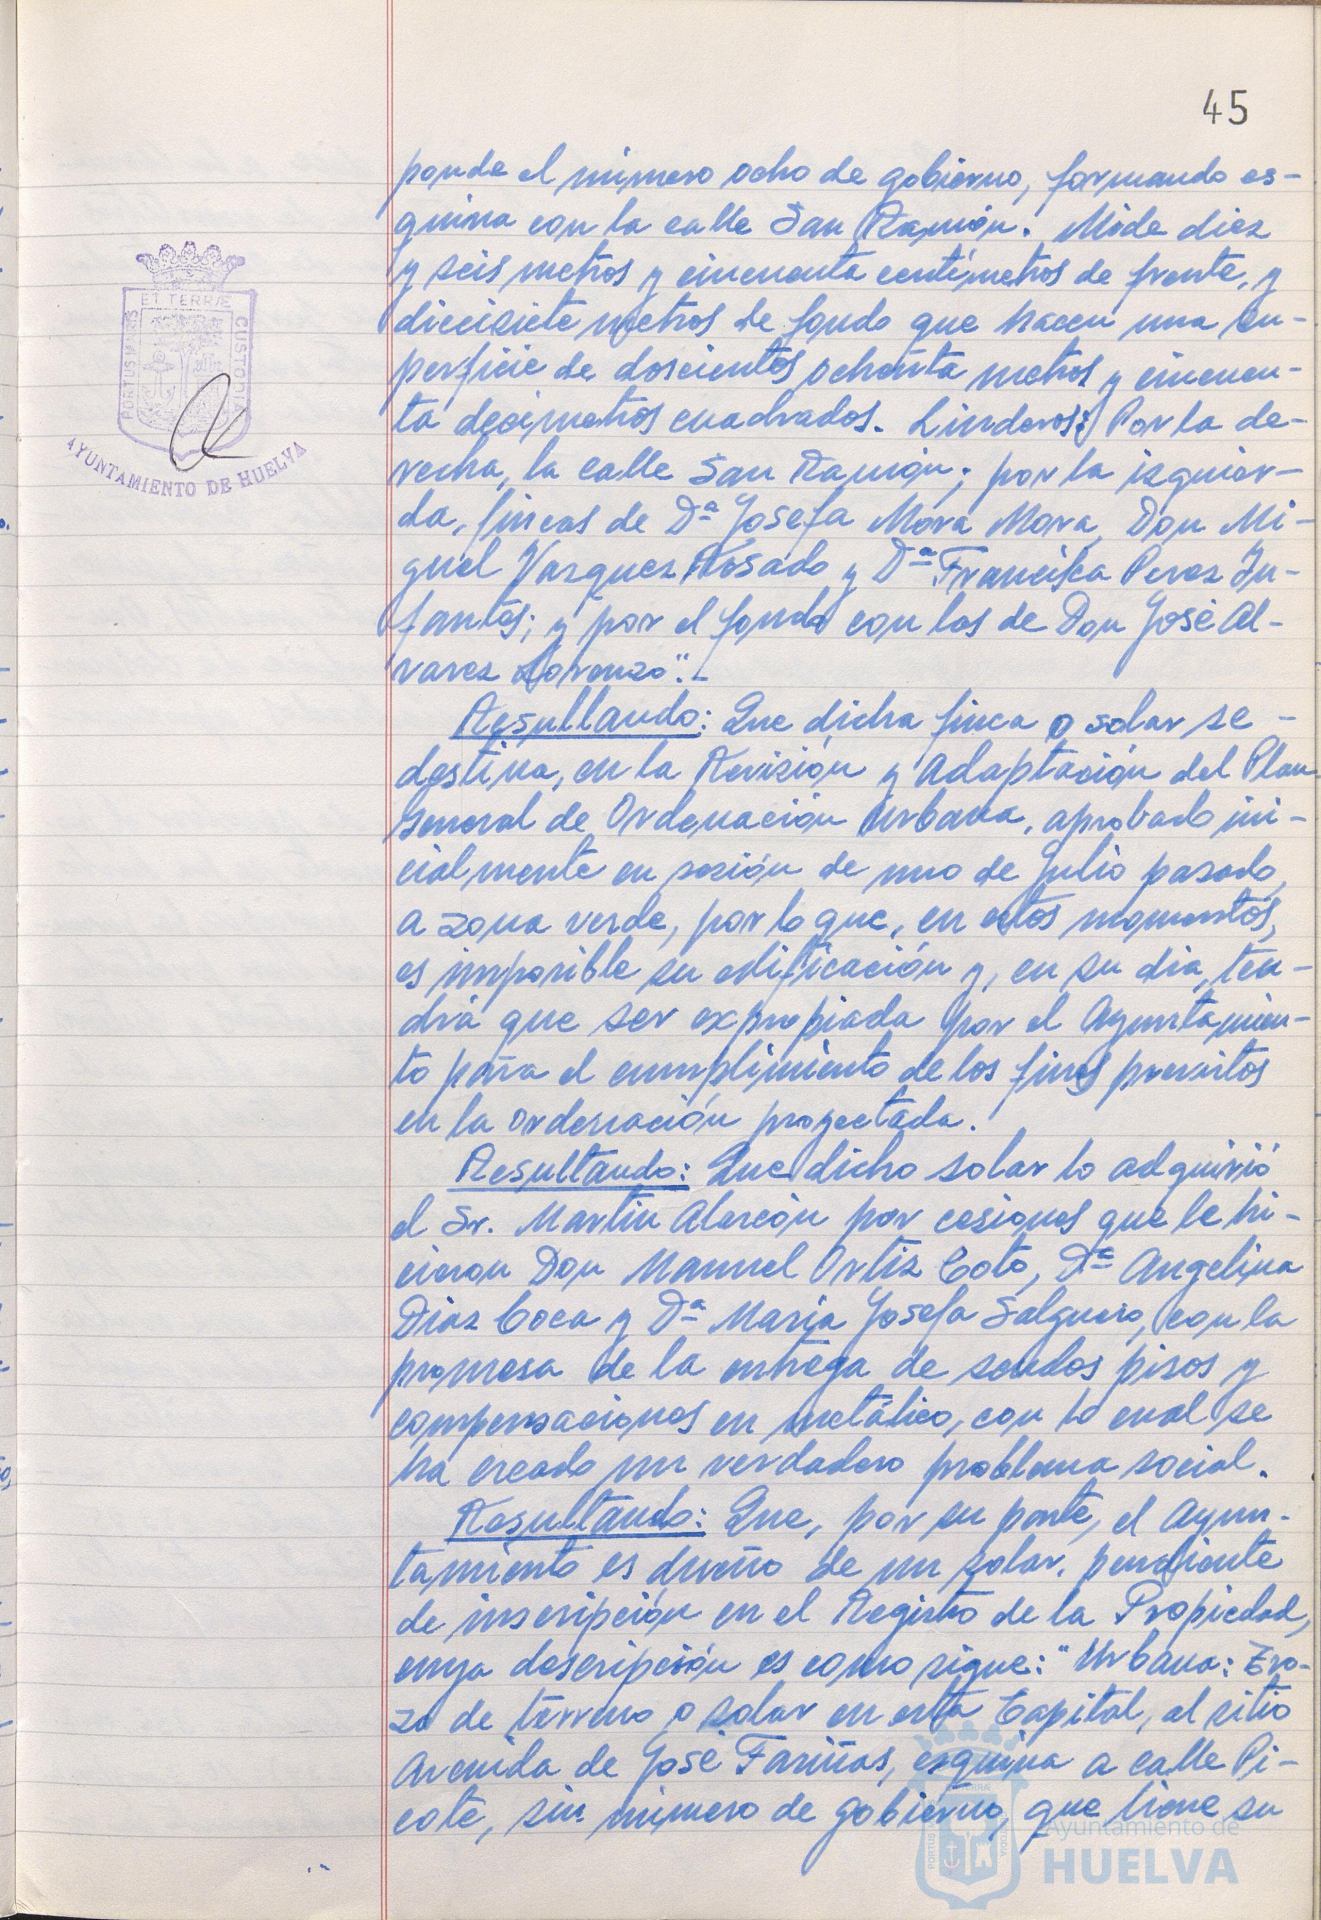 45
ponde el número ocho de gobierno, formando es-
quina con la calle San Ramón. Mide diez
y seis metros y cincuenta centímetros de frente, y
diecisiete metros de fondo que hacen una su-
perficie de doscientos ochenta metros y cincuen-
ta decimetros cuadrados. Linderos: Por la de-
recha, la calle San Ramón; por la izquier-
da, fincas de Dª Josefa Mora Mora, Don Mi-
guel Vazquez Rosado y Dª Francisca Perez In-
fantes; y por el fondo con los de Don José Al-
varez Lorenzo".-
Resultando: Que dicha finca o solar se -
destina, en la Revisión y Adaptación del Plan
General de Ordenación Urbana, aprobado ini-
cialmente en sesión de uno de Julio pasado,
a zona verde, por lo que, en estos momentos,
es imposible su edificación y, en su dia, ten-
drá que ser expropiada por el Ayuntamien-
to para el cumplimiento de los fines previstos
en la ordenación proyectada.
Resultando: Que dicho solar lo adquirió
el Sr. Martin Alarcón por cesiones que le hi-
cieron Don Manuel Ortiz Coto, Dª Angelina
Diaz Coca y Dª Maria Josefa Salguero, con la
promesa de la entrega de sendos pisos y
compensaciones en metálico, con lo cual se
ha creado un verdadero problema social.
Resultando: Que, por su parte, el Ayun-
tamiento es dueño de un solar, pendiente
de inscripción en el Registro de la Propiedad,
cuya descripción es como sigue: "Urbana: Tro-
zo de terreno o solar en esta Capital, al sitio
Avenida de José Fariñas, esquina a calle Pi-
cote, sin número de gobierno, que tiene su
ET TERRÆ
PORTUS MARIS
CUSTODIA
AYUNTAMIENTO DE HUELVA
Ayuntamiento de
HUELVA